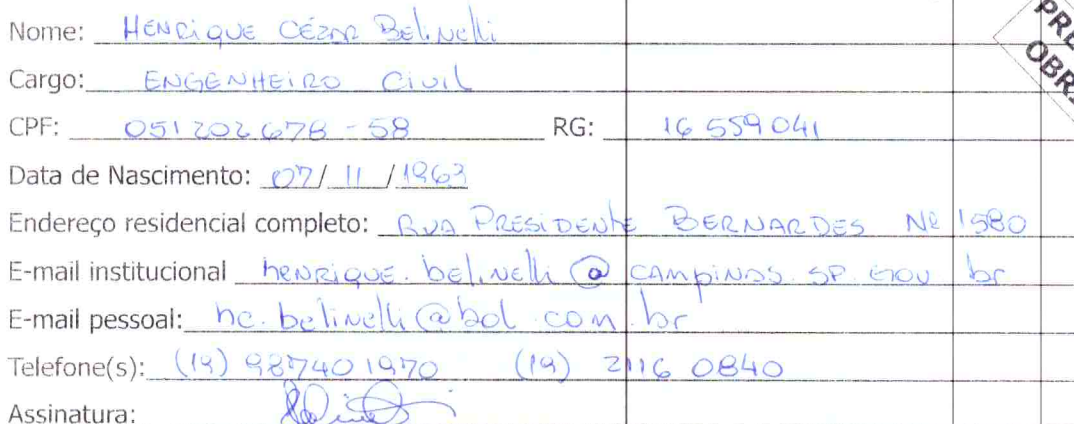 Nome: HENRIQUE CÉZAR Belinelli
Cargo: ENGENHEIRO CIVIL
CPF: 051202678-58 RG: 16559041
Data de Nascimento: 07/11/1963
Endereço residencial completo: RUA PRESIDENTE BERNARDES Nº 1580
E-mail institucional henrique.belinelli@campinas.sp.gov.br
E-mail pessoal: hc.belinelli@bol.com.br
Telefone(s): (19) 987401970 (19) 2116 0840
Assinatura: